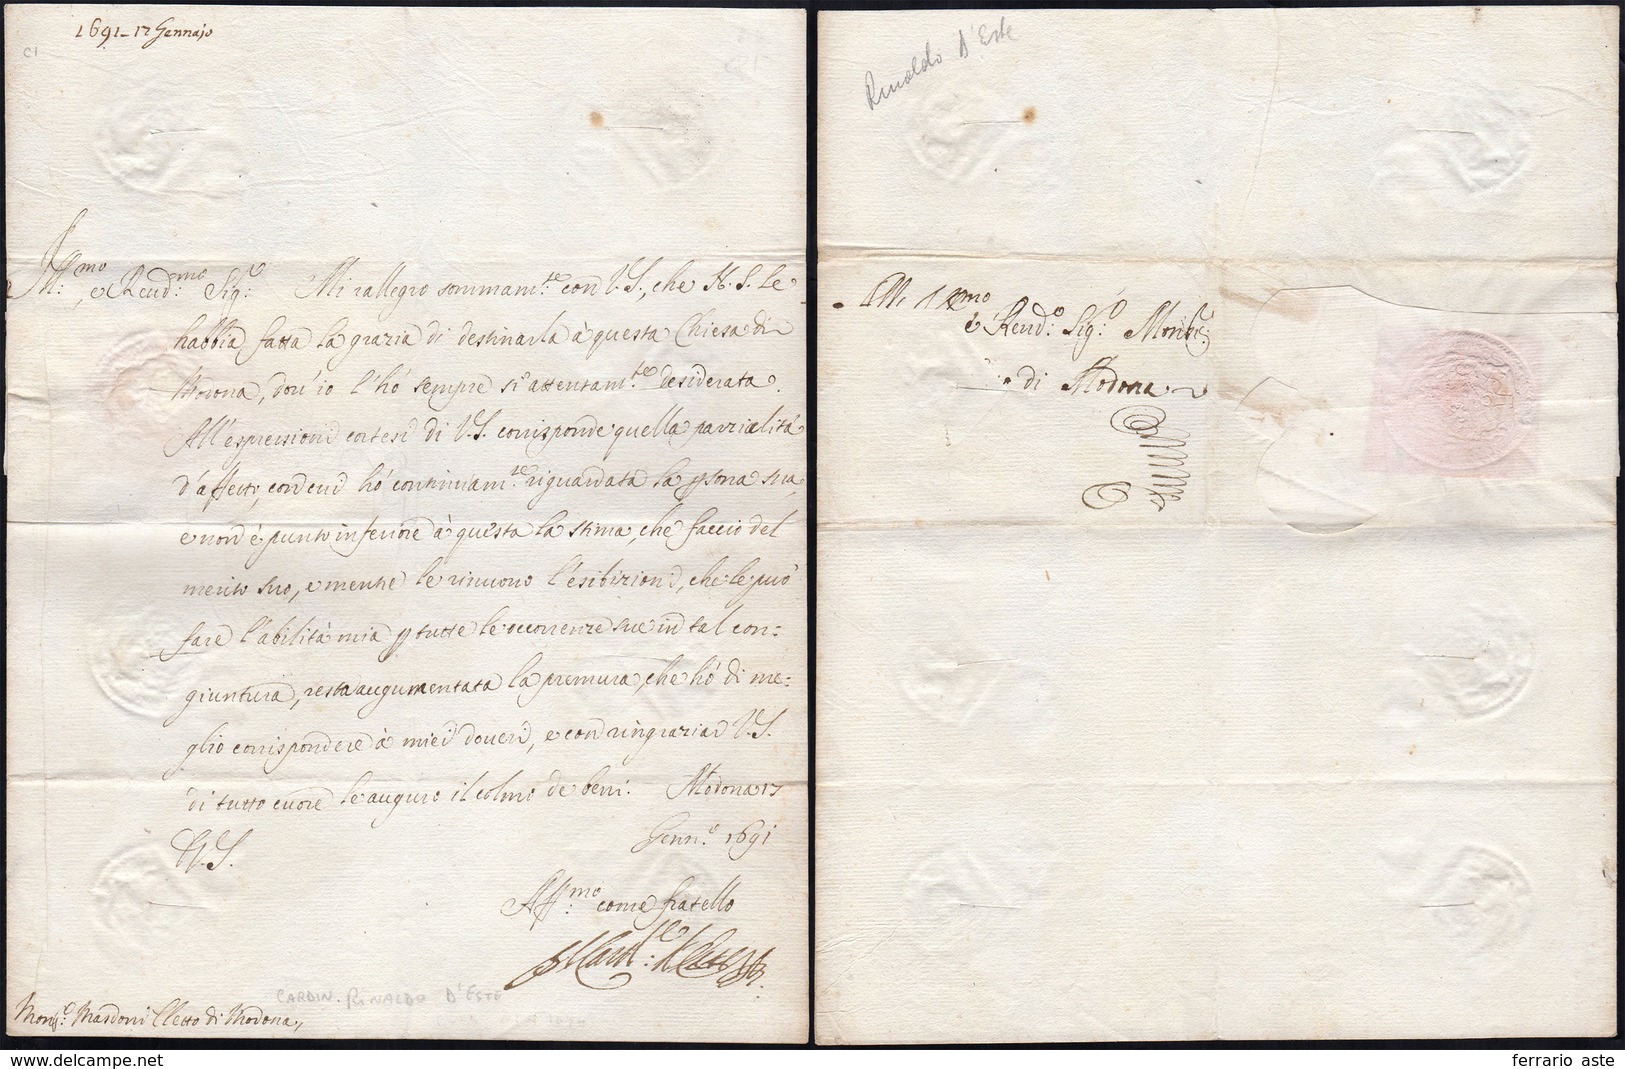 1691-17 Gennajo
C1
Ill:mo e Reud:mo Sig:re Mi rallegro sommam:te con V.S., che N.S. le
habbia fatta la grazia di destinarla à questa Chiesa di
Modona, dou'io l'hò sempre sì attentam:te desiderata.
All'espressioni cortesi di V.S. corrisponde quella parzialità
d'affetto, con cui hò continuam:te riguardata la psona sua,
e non è punto inferiore à questa la stima, che faccio del
merito suo, e mentre le rinuouo l'esibizioni, che le può
fare l'abilità mia p tutte le occorrenze sue in tal con=
giuntura, resta augumentata la premura, che hò di me=
glio corrispondere à miei doueri, e con ringraziar V.S.
di tutto cuore le auguro il colmo de beni. Modona 17
Genn:o 1691
V.S.
Aff:mo come fratello
Il Card:le d'Este
CARDIN. RINALDO D'ESTE
Mons:r Masdoni Eletto di Modona
Rinaldo D'Este
All' Ill:mo
e Reud:o Sig:r
di Modona
delcampe.net
ferrario aste